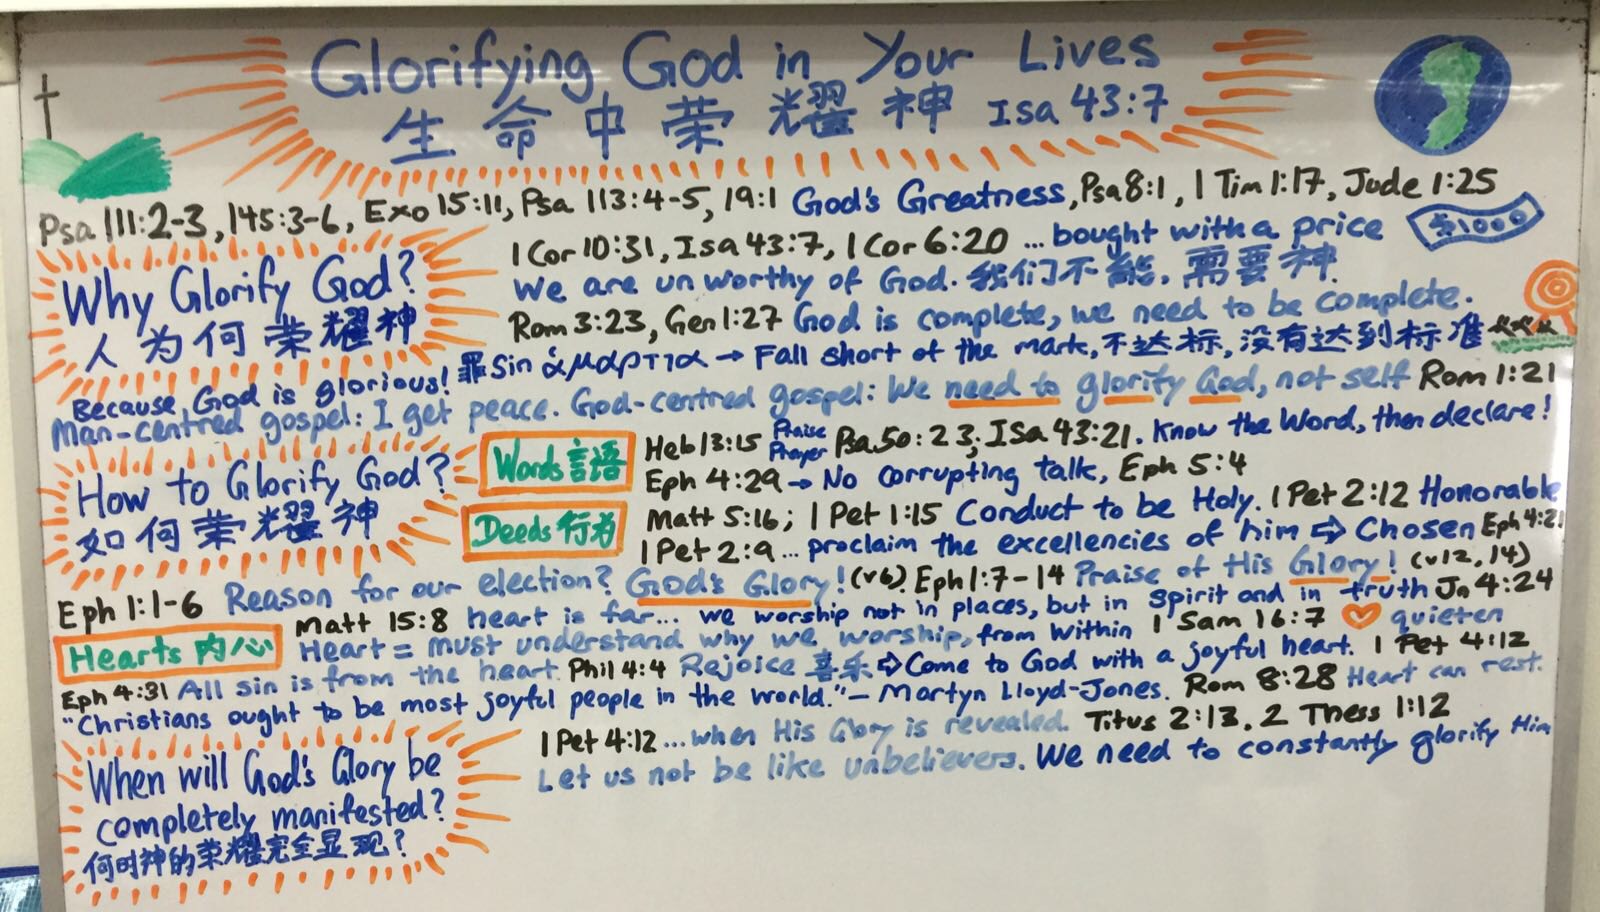 Glorifying God in Your Lives
生命中荣耀神 Isa 43:7
Psa 111:2-3, 145:3-6, Exo 15:11, Psa 113:4-5, 19:1 God's Greatness, Psa 8:1, 1 Tim 1:17, Jude 1:25
Why Glorify God?
人为何荣耀神
1 Cor 10:31, Isa 43:7, 1 Cor 6:20 ...bought with a price
$1000
We are unworthy of God. 我们不能, 需要神.
Rom 3:23, Gen 1:27 God is complete, we need to be complete.
罪 Sin ἁμαρτια → Fall short of the mark, 不达标, 没有达到标准
Because God is glorious!
Man-centred gospel: I get peace. God-centred gospel: We need to glorify God, not self Rom 1:21
How to Glorify God?
如何荣耀神
Words 言语
Heb 13:15 Praise Prayer Psa 50:23; Isa 43:21. Know the Word, then declare!
Eph 4:29 → No corrupting talk, Eph 5:4
Deeds 行为
Matt 5:16; 1 Pet 1:15 Conduct to be Holy. 1 Pet 2:12 Honorable
1 Pet 2:9 ... proclaim the excellencies of him ⇨ Chosen Eph 4:21
Eph 1:1-6 Reason for our election? God's Glory! (v6) Eph 1:7-14 Praise of His Glory! (v12, 14)
Hearts 内心
Matt 15:8 heart is far... we worship not in places, but in spirit and in truth Jn 4:24
Heart = must understand why we worship, from within 1 Sam 16:7 quieten
Eph 4:31 All sin is from the heart. Phil 4:4 Rejoice 喜乐 ⇨ Come to God with a joyful heart. 1 Pet 4:12
"Christians ought to be most joyful people in the world." – Martyn Lloyd-Jones. Rom 8:28 Heart can rest.
When will God's Glory be
completely manifested?
何时神的荣耀完全显现?
1 Pet 4:12 ...when His Glory is revealed. Titus 2:13. 2 Thess 1:12
Let us not be like unbelievers. We need to constantly glorify Him